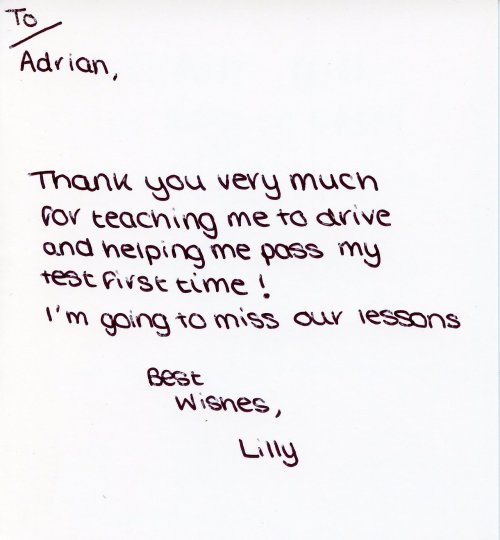 To
Adrian,
Thank you very much
for teaching me to drive
and helping me pass my
test first time!
I'm going to miss our lessons
Best
Wishes,
Lilly